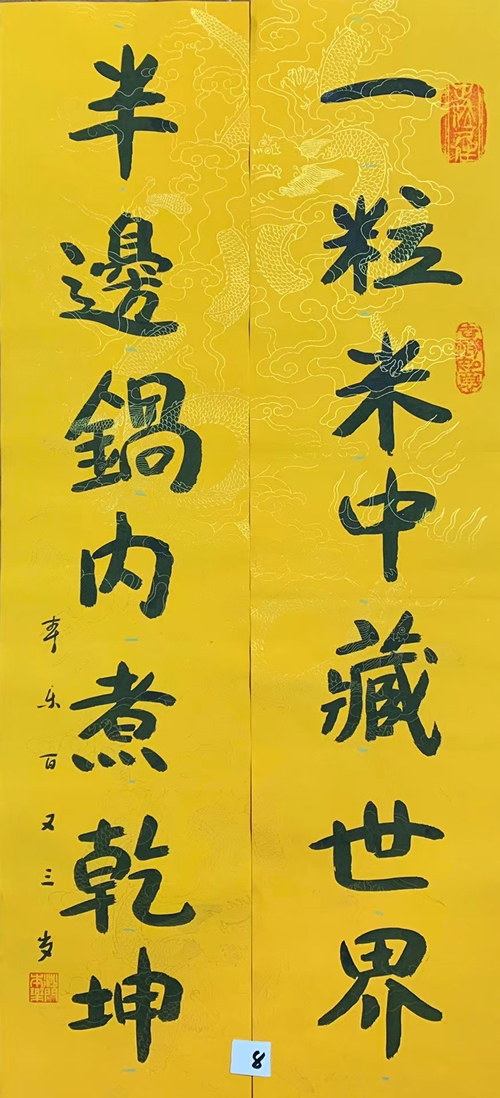 一粒米中藏世界
半邊鍋内煮乾坤
本乐百又三岁
8